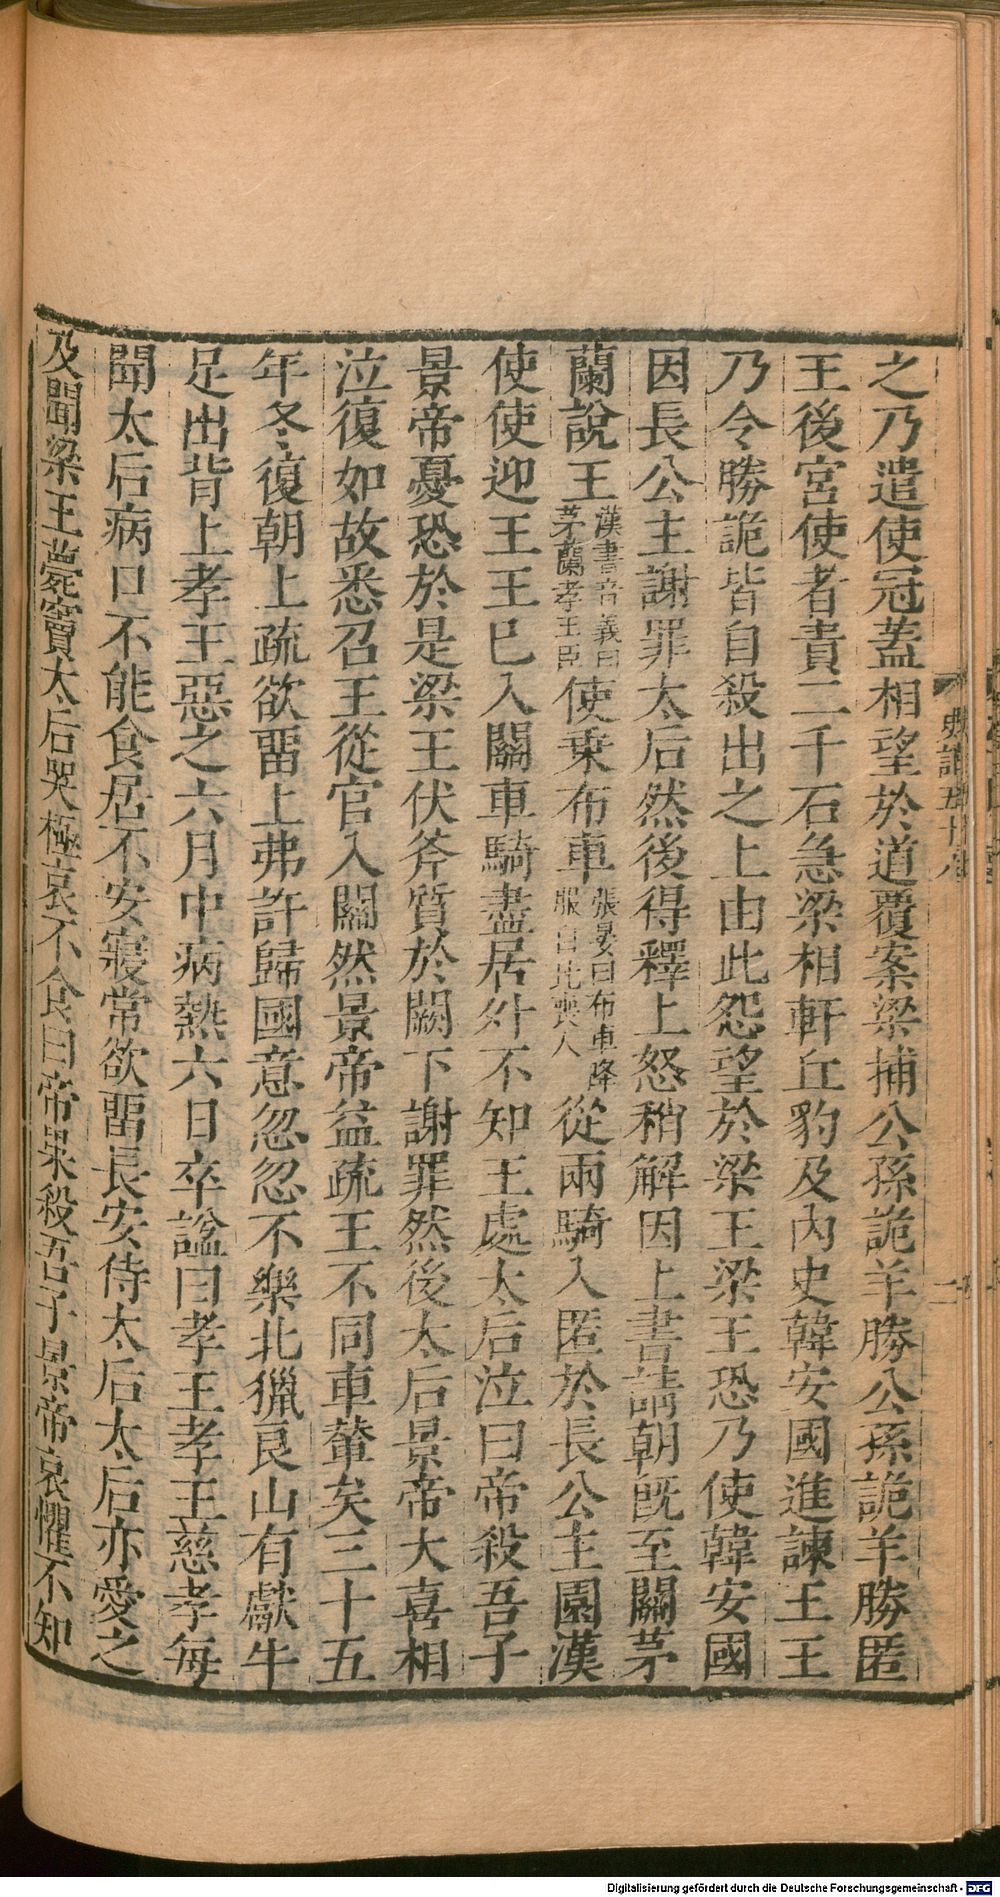 之乃遣使冠蓋相望於道覆案梁捕公孫詭羊勝公孫詭羊勝匿
王後宮使者責二千石急梁相軒丘豹及內史韓安國進諫王王
乃令勝詭皆自殺出之上由此怨望於梁王梁王恐乃使韓安國
因長公主謝罪太后然後得釋上怒稍解因上書請朝旣至關茅
蘭說王漢書音義曰茅蘭孝王臣使乘布車張晏曰布車降服自比喪人從兩騎入匿於長公主園漢
使使迎王王已入關車騎盡居外不知王處太后泣曰帝殺吾子
景帝憂恐於是梁王伏斧質於闕下謝罪然後太后景帝大喜相
泣復如故悉召王從官入關然景帝益疏王不同車輦矣三十五
年冬復朝上疏欲畱上弗許歸國意忽忽不樂北獵良山有獻牛
足出背上孝王惡之六月中病熱六日卒諡曰孝王孝王慈孝每
聞太后病口不能食居不安寢常欲畱長安侍太后太后亦愛之
及聞梁王薨竇太后哭極哀不食曰帝果殺吾子景帝哀懼不知
史記五十八
二
Digitalisierung gefördert durch die Deutsche Forschungsgemeinschaft - DFG